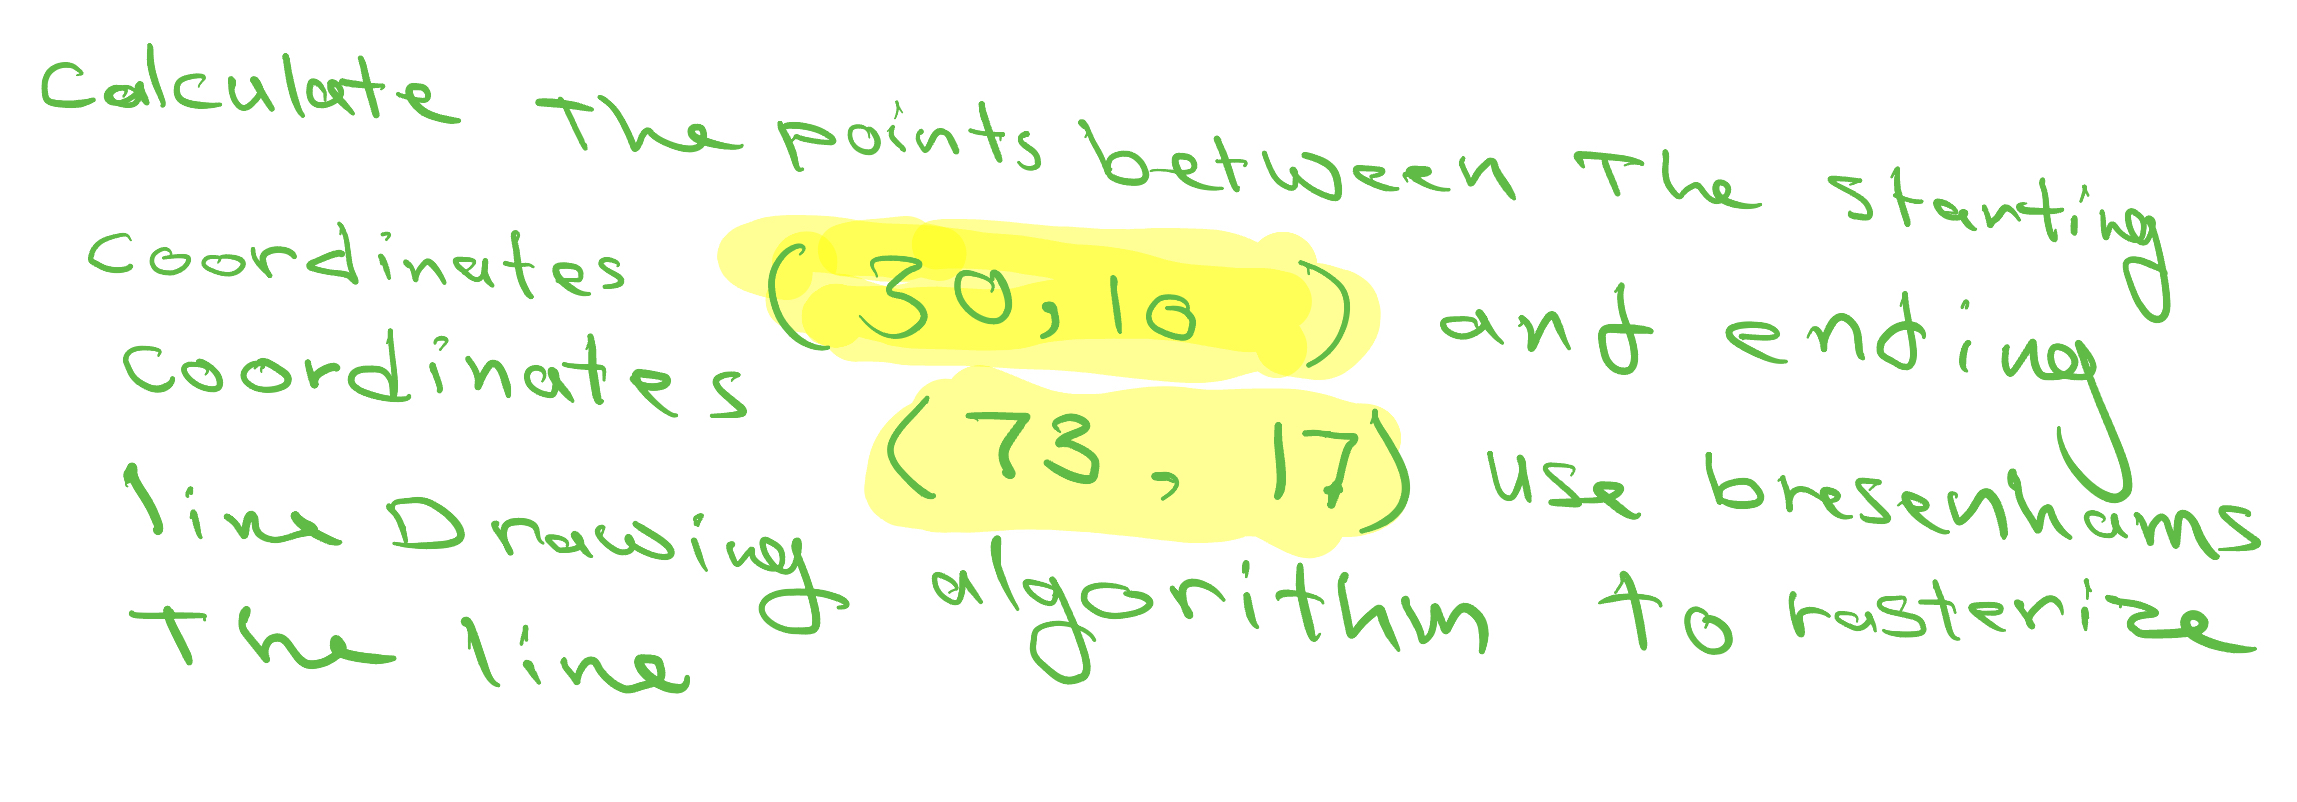 Calculate The points between The starting
coordinates (30,10) and ending
coordinates (73, 17) use bresenhams
line Drawing algorithm to rasterize
The line